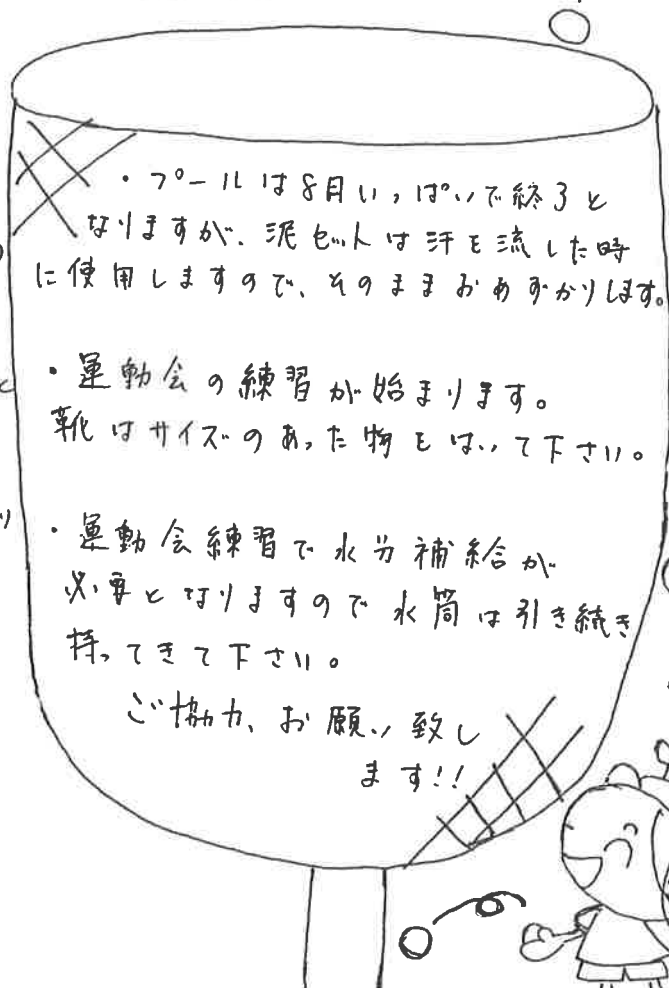 ・プールは8月いっぱいで終了と
なりますが、泥セットは汗を流した時
に使用しますので、そのままおあずかりします。
・運動会の練習が始まります。
靴はサイズのあった物をはいて下さい。
・運動会練習で水分補給が
必要となりますので水筒は引き続き
持ってきて下さい。
ご協力、お願い致し
ます!!